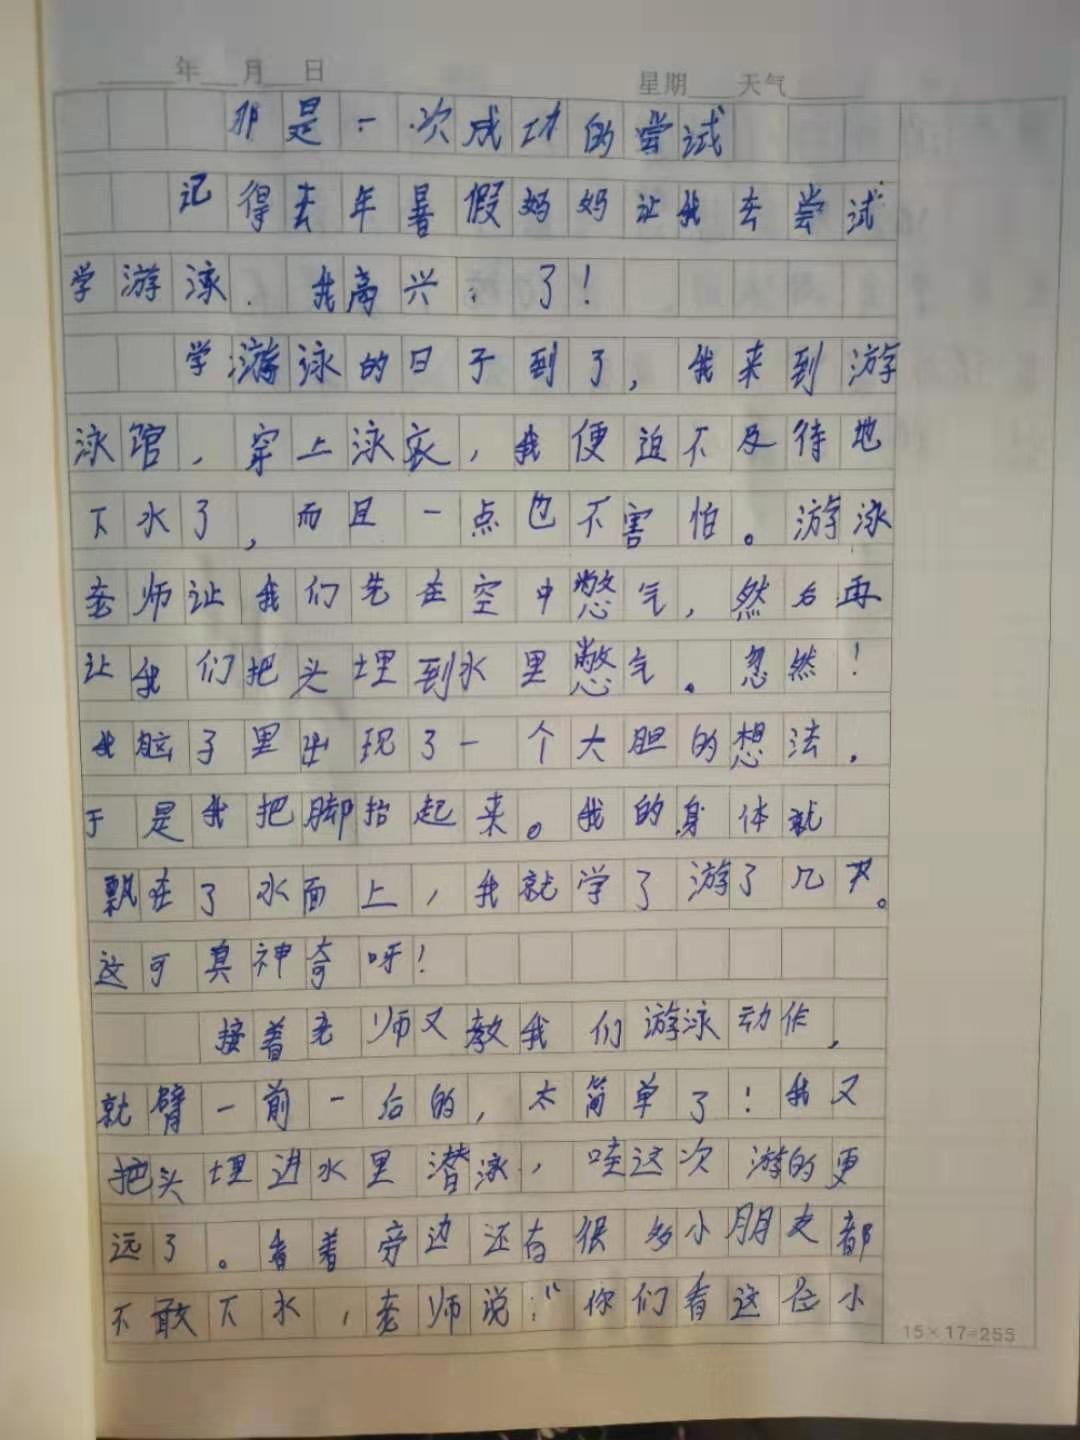 年 月 日 星期 天气
那是一次成功的尝试
记得去年暑假妈妈让我去尝试
学游泳．我高兴 了！
学游泳的日子到了，我来到游
泳馆，穿上泳衣，我便迫不及待地
下水了，而且一点也不害怕。游泳
老师让我们先在空中憋气，然后再
让我们把头埋到水里憋气．忽然！
我脑子里出现了一个大胆的想法．
于是我把脚抬起来。我的身体就
飘在了水面上，我就学了游了几下。
这可真神奇呀！
接着老师又教我们游泳动作，
就臂一前一后的，太简单了！我又
把头埋进水里潜泳，哇这次游的更
远了。看着旁边还有很多小朋友都
不敢下水，老师说：“你们看这位小
15×17=255